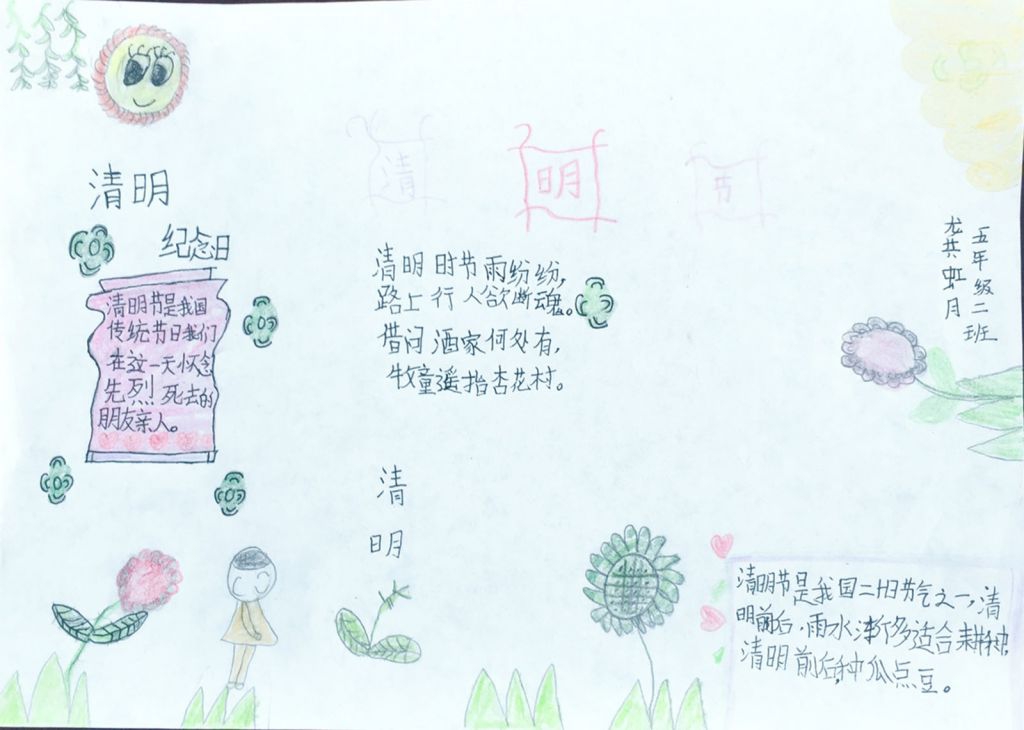 清明
纪念日
清明节是我国
传统节日我们
在这一天怀念
先烈死去的
朋友亲人。
清 明 节
清明时节雨纷纷,
路上行人欲断魂。
借问酒家何处有,
牧童遥指杏花村。
清
明
五年级二班
龙共虹月
清明节是我国二十四节气之一,清
明前后,雨水渐多适合耕种,
清明前后种瓜点豆。